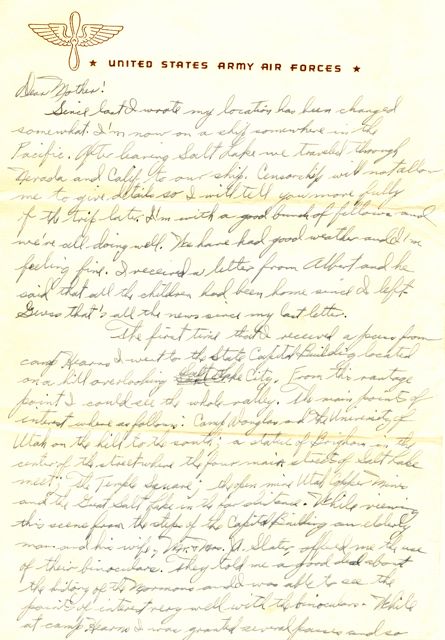 ★ UNITED STATES ARMY AIR FORCES ★
Dear Mother:
Since last I wrote my location has been changed
somewhat. I'm now on a ship somewhere in the
Pacific. After leaving Salt Lake we traveled through
Nevada and Calif. to our ship. Censorship will not allow
me to give details so I will tell you more fully
of the trip later. I'm with a good bunch of fellows and
we're all doing well. We have had good weather and I'm
feeling fine. I received a letter from Albert and he
said that all the children had been home since I left.
Guess that's all the news since my last letter.
The first time that I received a pass from
camp Kearns I went to the State Capitol Building located
on a hill overlooking Salt Lake City. From this vantage
point I could see the whole valley. The main points of
interest where as follows: Camp Douglas and the University of
Utah on the hill to the south; a statue of Brigham in the
center of the street where the four main streets of Salt Lake
meet; The Temple Square; the open mine Utah Copper Mine
and the Great Salt Lake in the far distance. While viewing
this scene from the steps of the Capitol Building an elderly
man and his wife, Mr. & Mrs. A. Slater, offered me the use
of their binoculars. They told me a good deal about
the history of the Mormons and I was able to see the
points of interest very well with the binoculars. While
at camp Kearns I was granted several passes and so